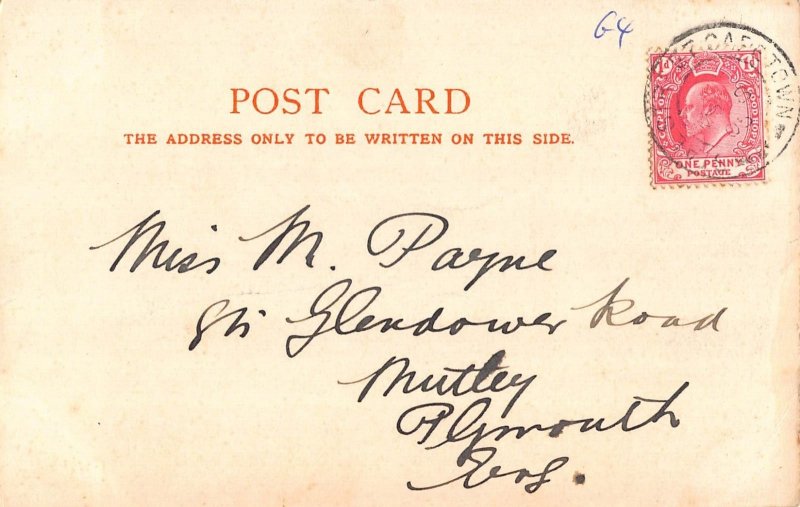 64
CAPETOWN
1d 1d
CAPE OF GOOD HOPE
ONE PENNY
POSTAGE
POST CARD
THE ADDRESS ONLY TO BE WRITTEN ON THIS SIDE.
Miss M. Payne
Glendower Road
Mutley
Plymouth
Eng.